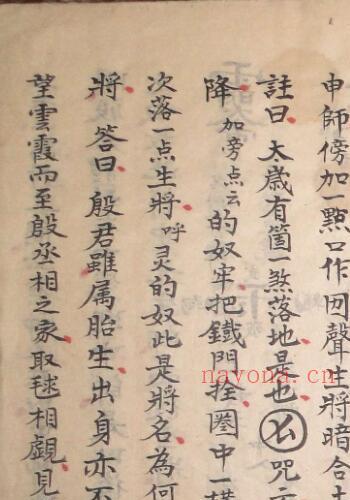 申師傍加一點口作囙聲生將暗合
註曰太歳有箇一煞落地是也 咒
降加旁点云的奴牢把鐵門拴圏中一
次落一点生將呼灵的奴此是將名為何
將答曰殷君雖属胎生出身亦不
望雲霞而至殷丞相之家取毬相觑見
nayona.cn